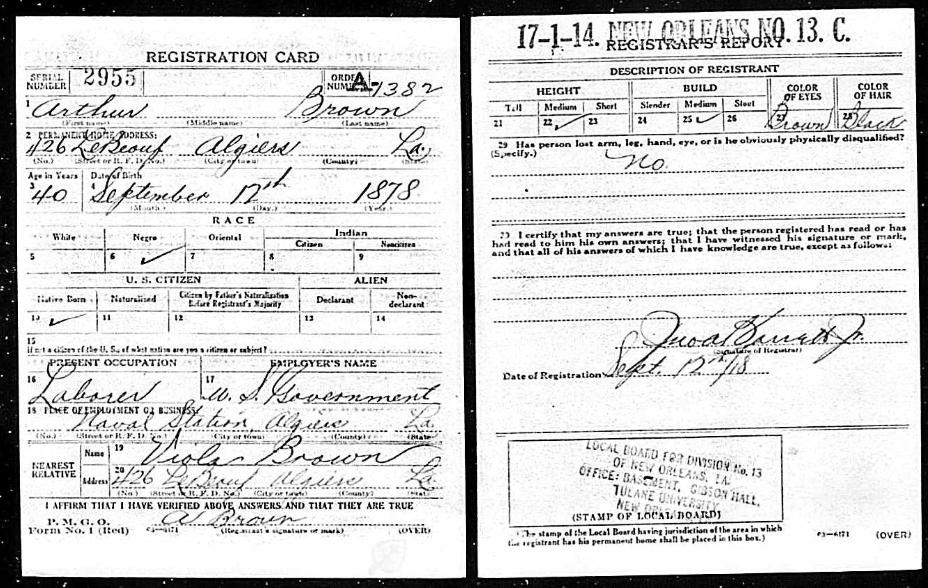 REGISTRATION CARD
SERIAL NUMBER 2955 ORDER NUMBER A7382
1 Arthur Brown
(First name) (Middle name) (Last name)
2 PERMANENT HOME ADDRESS:
426 LeBeouf Algiers La.
(No.) (Street or R. F. D. No.) (City or town) (County) (State)
Age in Years Date of Birth
3 40 4 September 12th 1878
(Month.) (Day.) (Year.)
RACE
White Negro Oriental Indian
Citizen Noncitizen
5 6 ✓ 7 8 9
U. S. CITIZEN ALIEN
Native Born Naturalized Citizen by Father's Naturalization Before Registrant's Majority Declarant Non-declarant
10 ✓ 11 12 13 14
15
If not a citizen of the U. S., of what nation are you a citizen or subject?
PRESENT OCCUPATION EMPLOYER'S NAME
16 Laborer 17 U. S. Government
18 PLACE OF EMPLOYMENT OR BUSINESS:
Naval Station Algiers La
(No.) (Street or R. F. D. No.) (City or town) (County) (State)
NEAREST RELATIVE Name 19 Viola Brown
Address 20 426 LeBeouf Algiers La
(No.) (Street or R. F. D. No.) (City or town) (County) (State)
I AFFIRM THAT I HAVE VERIFIED ABOVE ANSWERS AND THAT THEY ARE TRUE
P. M. G. O.
Form No. 1 (Red) 03—6171 A Brown
(Registrant's signature or mark) (OVER)
17-1-14. NEW ORLEANS NO. 13. C.
REGISTRAR'S REPORT
DESCRIPTION OF REGISTRANT
HEIGHT BUILD COLOR OF EYES COLOR OF HAIR
Tall Medium Short Slender Medium Stout
21 22 ✓ 23 24 25 ✓ 26 27 Brown 28 Black
29 Has person lost arm, leg, hand, eye, or is he obviously physically disqualified?
(Specify.) no
30 I certify that my answers are true; that the person registered has read or has
had read to him his own answers; that I have witnessed his signature or mark,
and that all of his answers of which I have knowledge are true, except as follows:
(Signature of Registrar)
Date of Registration Sept. 12th/18
LOCAL BOARD FOR DIVISION No. 13
OF NEW ORLEANS, LA.
OFFICE: BASEMENT, GIBSON HALL,
TULANE UNIVERSITY
NEW ORLEANS
(STAMP OF LOCAL BOARD)
(The stamp of the Local Board having jurisdiction of the area in which
the registrant has his permanent home shall be placed in this box.)
03—6171 (OVER)